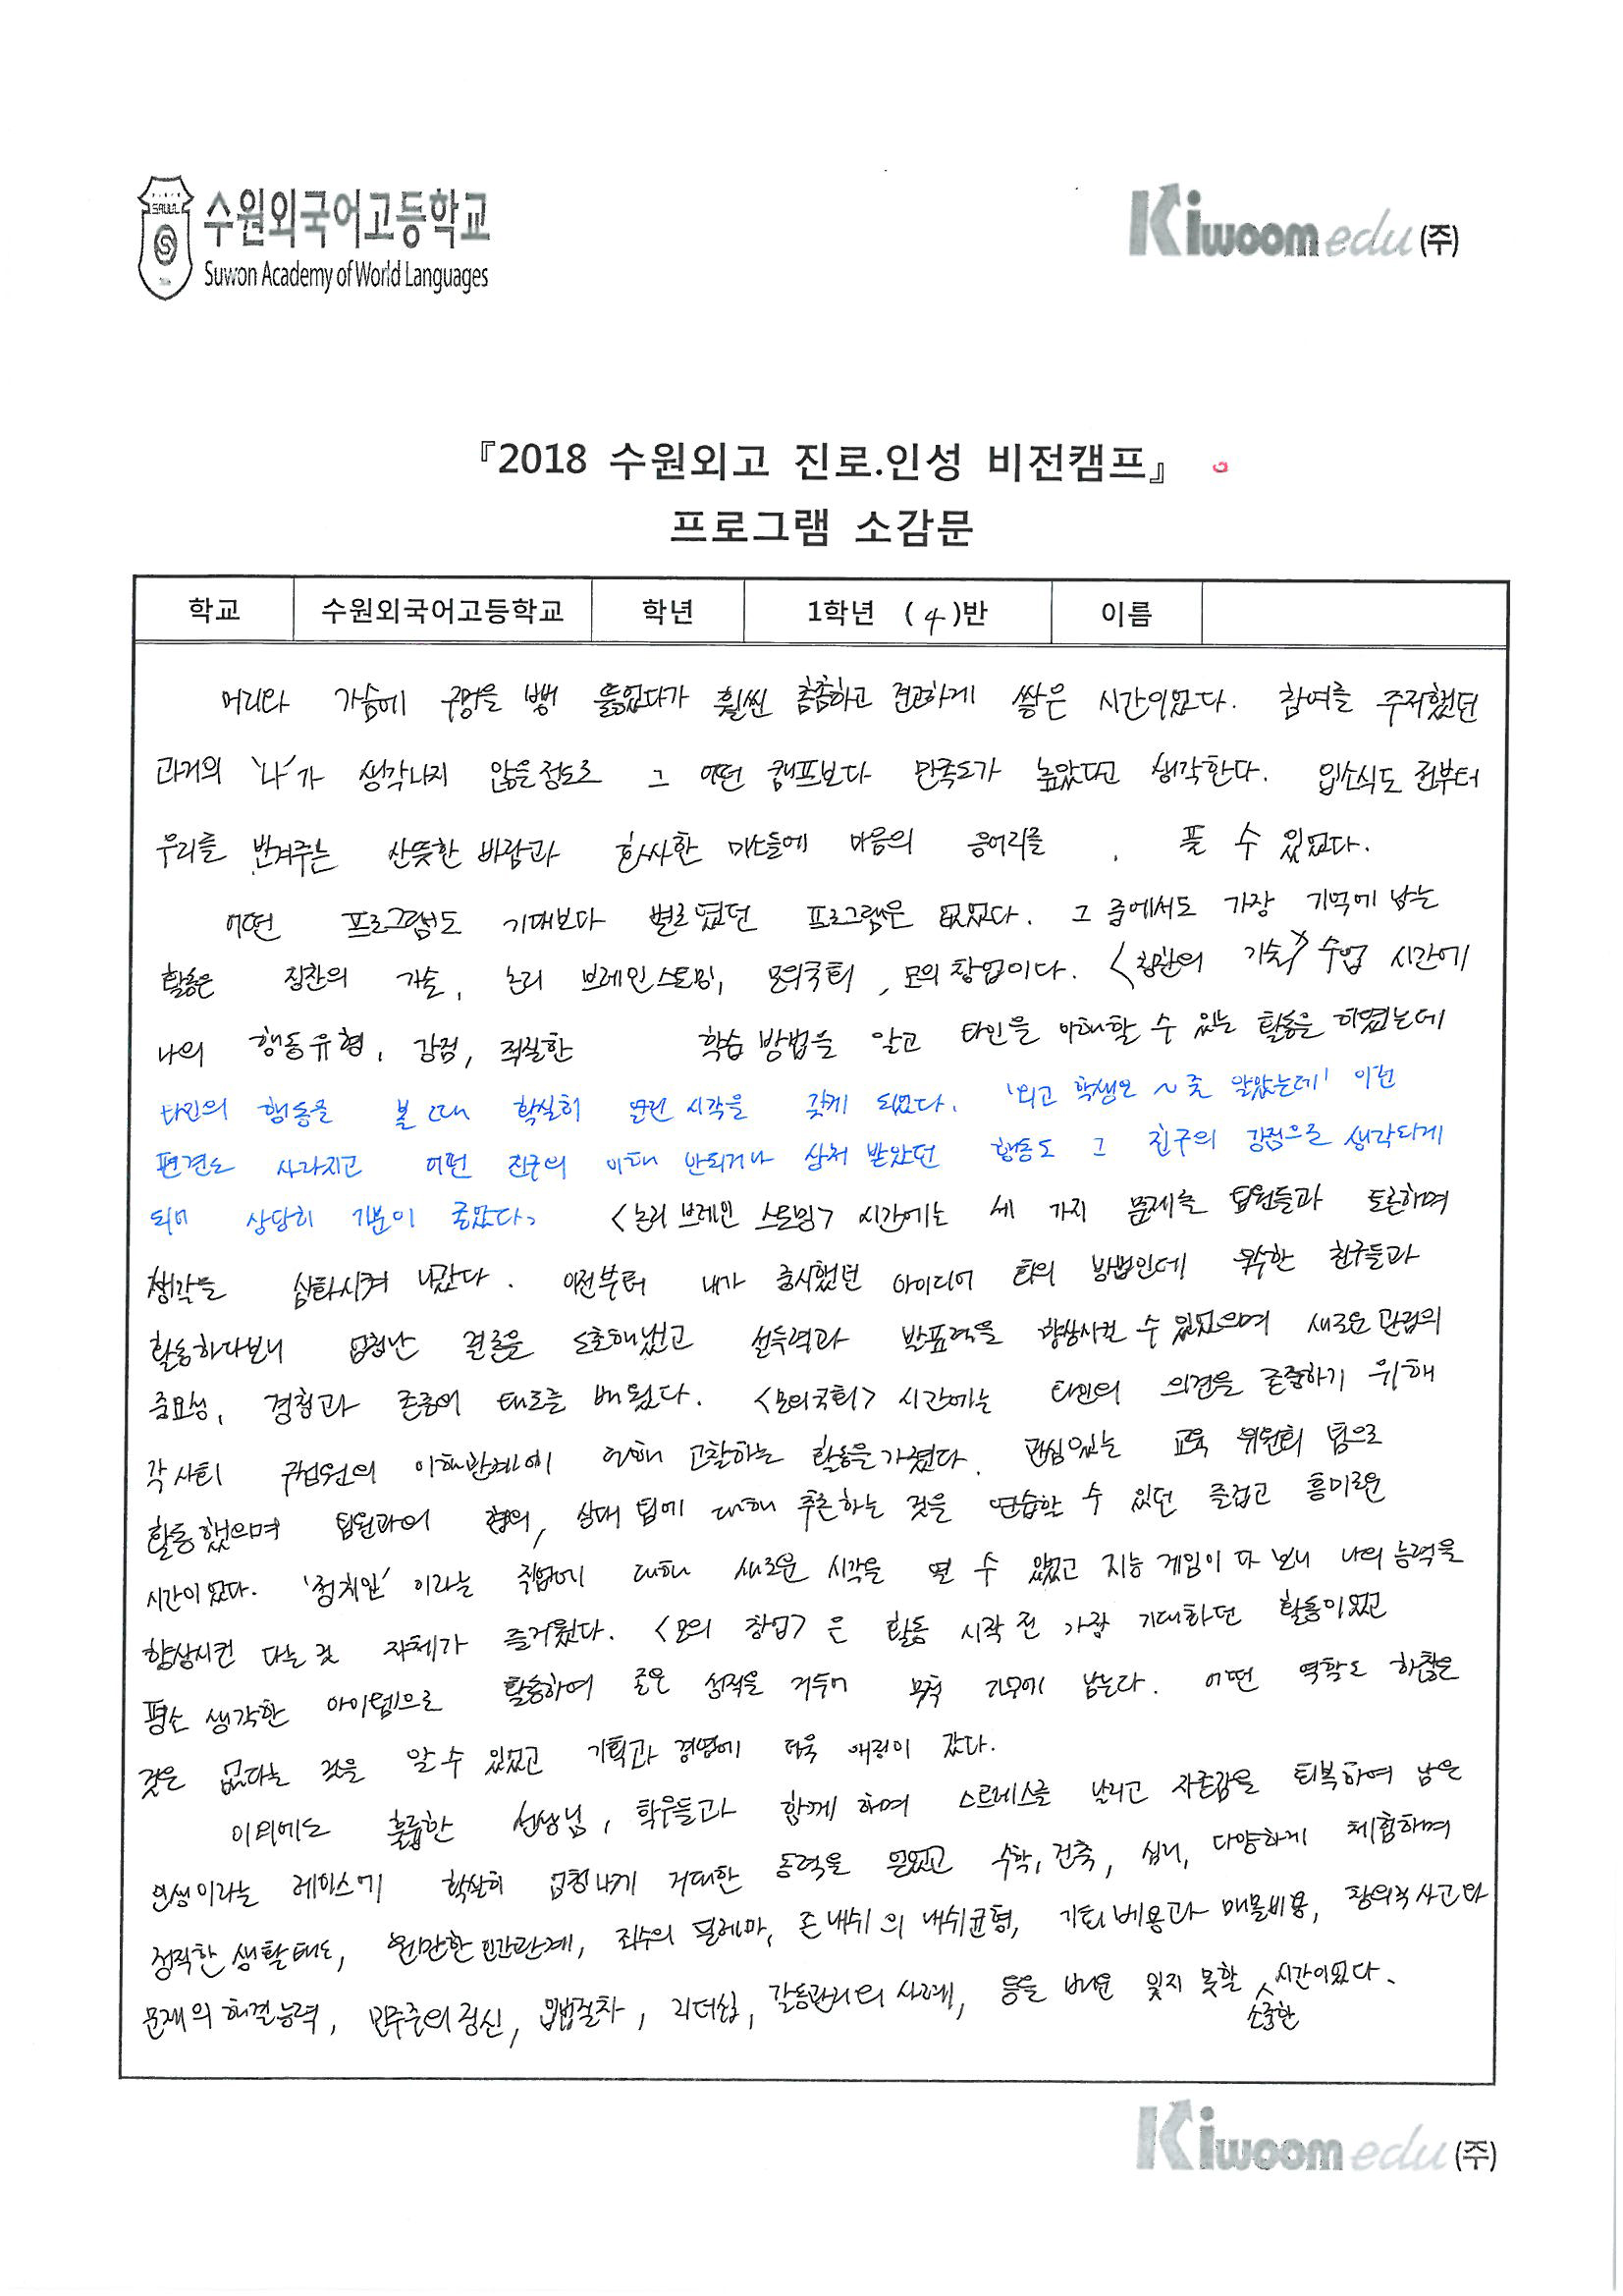 수원외국어고등학교
Suwon Academy of World Languages
Kiwoom edu (주)
『2018 수원외고 진로.인성 비전캠프』
프로그램 소감문
학교 수원외국어고등학교 학년 1학년 (4)반 이름
머리와 가슴에 구멍을 뻥 뚫었다가 훨씬 촘촘하고 견고하게 쌓은 시간이었다. 참여를 주저했던
과거의 '나'가 생각나지 않을정도로 그 어떤 캠프보다 만족도가 높았다고 생각한다. 입소식도 전부터
우리를 반겨주는 산뜻한 바람과 화사한 미소들에 마음의 응어리를 풀 수 있었다.
어떤 프로그램도 기대보다 별로였던 프로그램은 없었다. 그 중에서도 가장 기억에 남는
활동은 칭찬의 기술, 논리 브레인스토밍, 모의국회, 모의창업이다. <칭찬의 기술> 수업 시간에
나의 행동유형, 강점, 적절한 학습방법을 알고 타인을 이해할 수 있는 활동을 하였는데
타인의 행동을 볼 때 확실히 열린 시각을 갖게 되었다. '외고 학생은 ~줄 알았는데' 이런
편견도 사라지고 어떤 친구의 이해 안되거나 상처 받았던 행동도 그 친구의 강점으로 생각되게
되어 상당히 기분이 좋았다. <논리 브레인 스토밍> 시간에는 세 가지 문제를 팀원들과 토론하며
생각을 심화시켜 나갔다. 이전부터 내가 중시했던 아이디어 의 방법인데 우수한 친구들과
활동하다보니 엄청난 결론을 도출해냈고 설득력과 발표력을 향상시킬 수 있었으며 새로운 관점의
중요성, 경청과 존중의 태도를 배웠다. <모의국회> 시간에는 타인의 의견을 존중하기 위해
각 사회 구성원의 이해관계에 대해 고찰하는 활동을 가졌다. 관심있는 교육 위원회 팀으로
활동했으며 팀원과의 협의, 상대 팀에 대해 추론하는 것을 연습할 수 있던 즐겁고 흥미로운
시간이었다. '정치인'이라는 직업에 대해 새로운 시각을 열 수 있었고 지능 게임이다 보니 나의 능력을
향상시킨 다는 것 자체가 즐거웠다. <모의 창업>은 활동 시작 전 가장 기대하던 활동이었고
평소 생각한 아이템으로 활동하여 좋은 성적을 거두어 무척 기억에 남는다. 어떤 역할도 하찮은
것은 없다는 것을 알 수 있었고 기획과 경영에 더욱 애정이 갔다.
이외에도 훌륭한 선생님, 학우들과 함께 하며 스트레스를 날리고 자존감을 회복하여 남은
인생이라는 레이스에 확실히 엄청나게 거대한 동력을 얻었고 수학, 건축, 심리, 다양하게 체험하며
정직한 생활태도, 원만한 인간관계, 죄수의 딜레마, 존 내쉬의 내쉬균형, 기회비용과 매몰비용, 창의적 사고와
문제의 해결능력, 민주주의 정신, 입법절차, 리더십, 갈등관리의 사례, 등을 배운 잊지 못할 소중한 시간이었다.
Kiwoom edu (주)